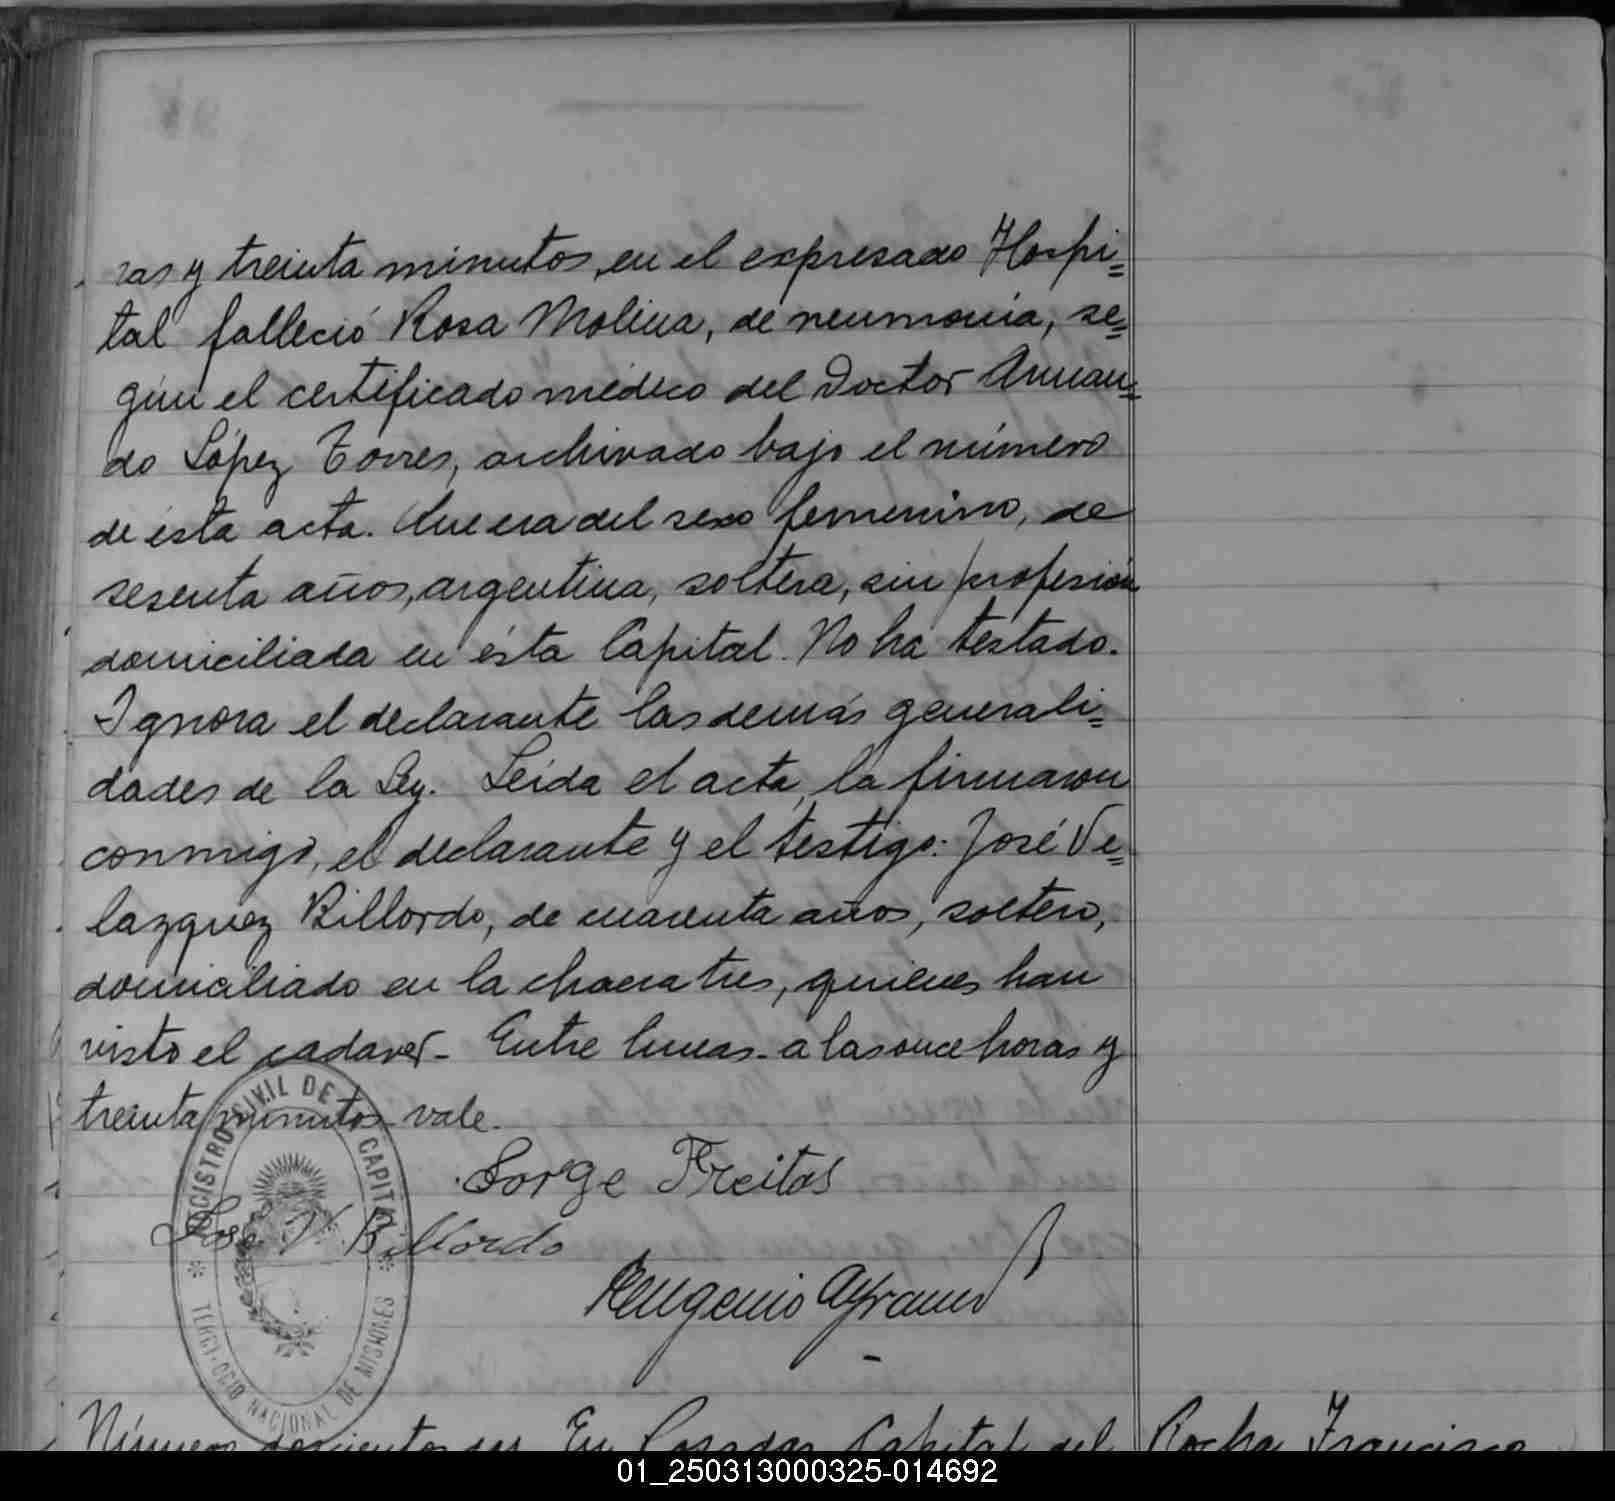 ras y treinta minutos, en el expresado Hospi=
tal falleció Rosa Molina, de neumonía, se=
gún el certificado médico del Doctor Arman=
do López Torres, archivado bajo el número
de ésta acta. Que era del sexo femenino, de
sesenta años, argentina, soltera, sin profesión
domiciliada en ésta Capital. No ha testado.
Ignora el declarante las demás generali=
dades de la Ley. Leída el acta, la firmaron
conmigo, el declarante y el testigo: José Ve=
lazquez Billordo, de cuarenta años, soltero,
domiciliado en la chacra tres, quienes han
visto el cadaver- Entre lineas- a las once horas y
treinta minutos- vale.
REGISTRO CIVIL DE LA CAPITAL
Jorge Freitas
José V. Billordo
Eugenio
NACIONAL DE MISIONES
Número doscientos dos En Posadas Capital del
Rocha Francisco
01_250313000325-014692